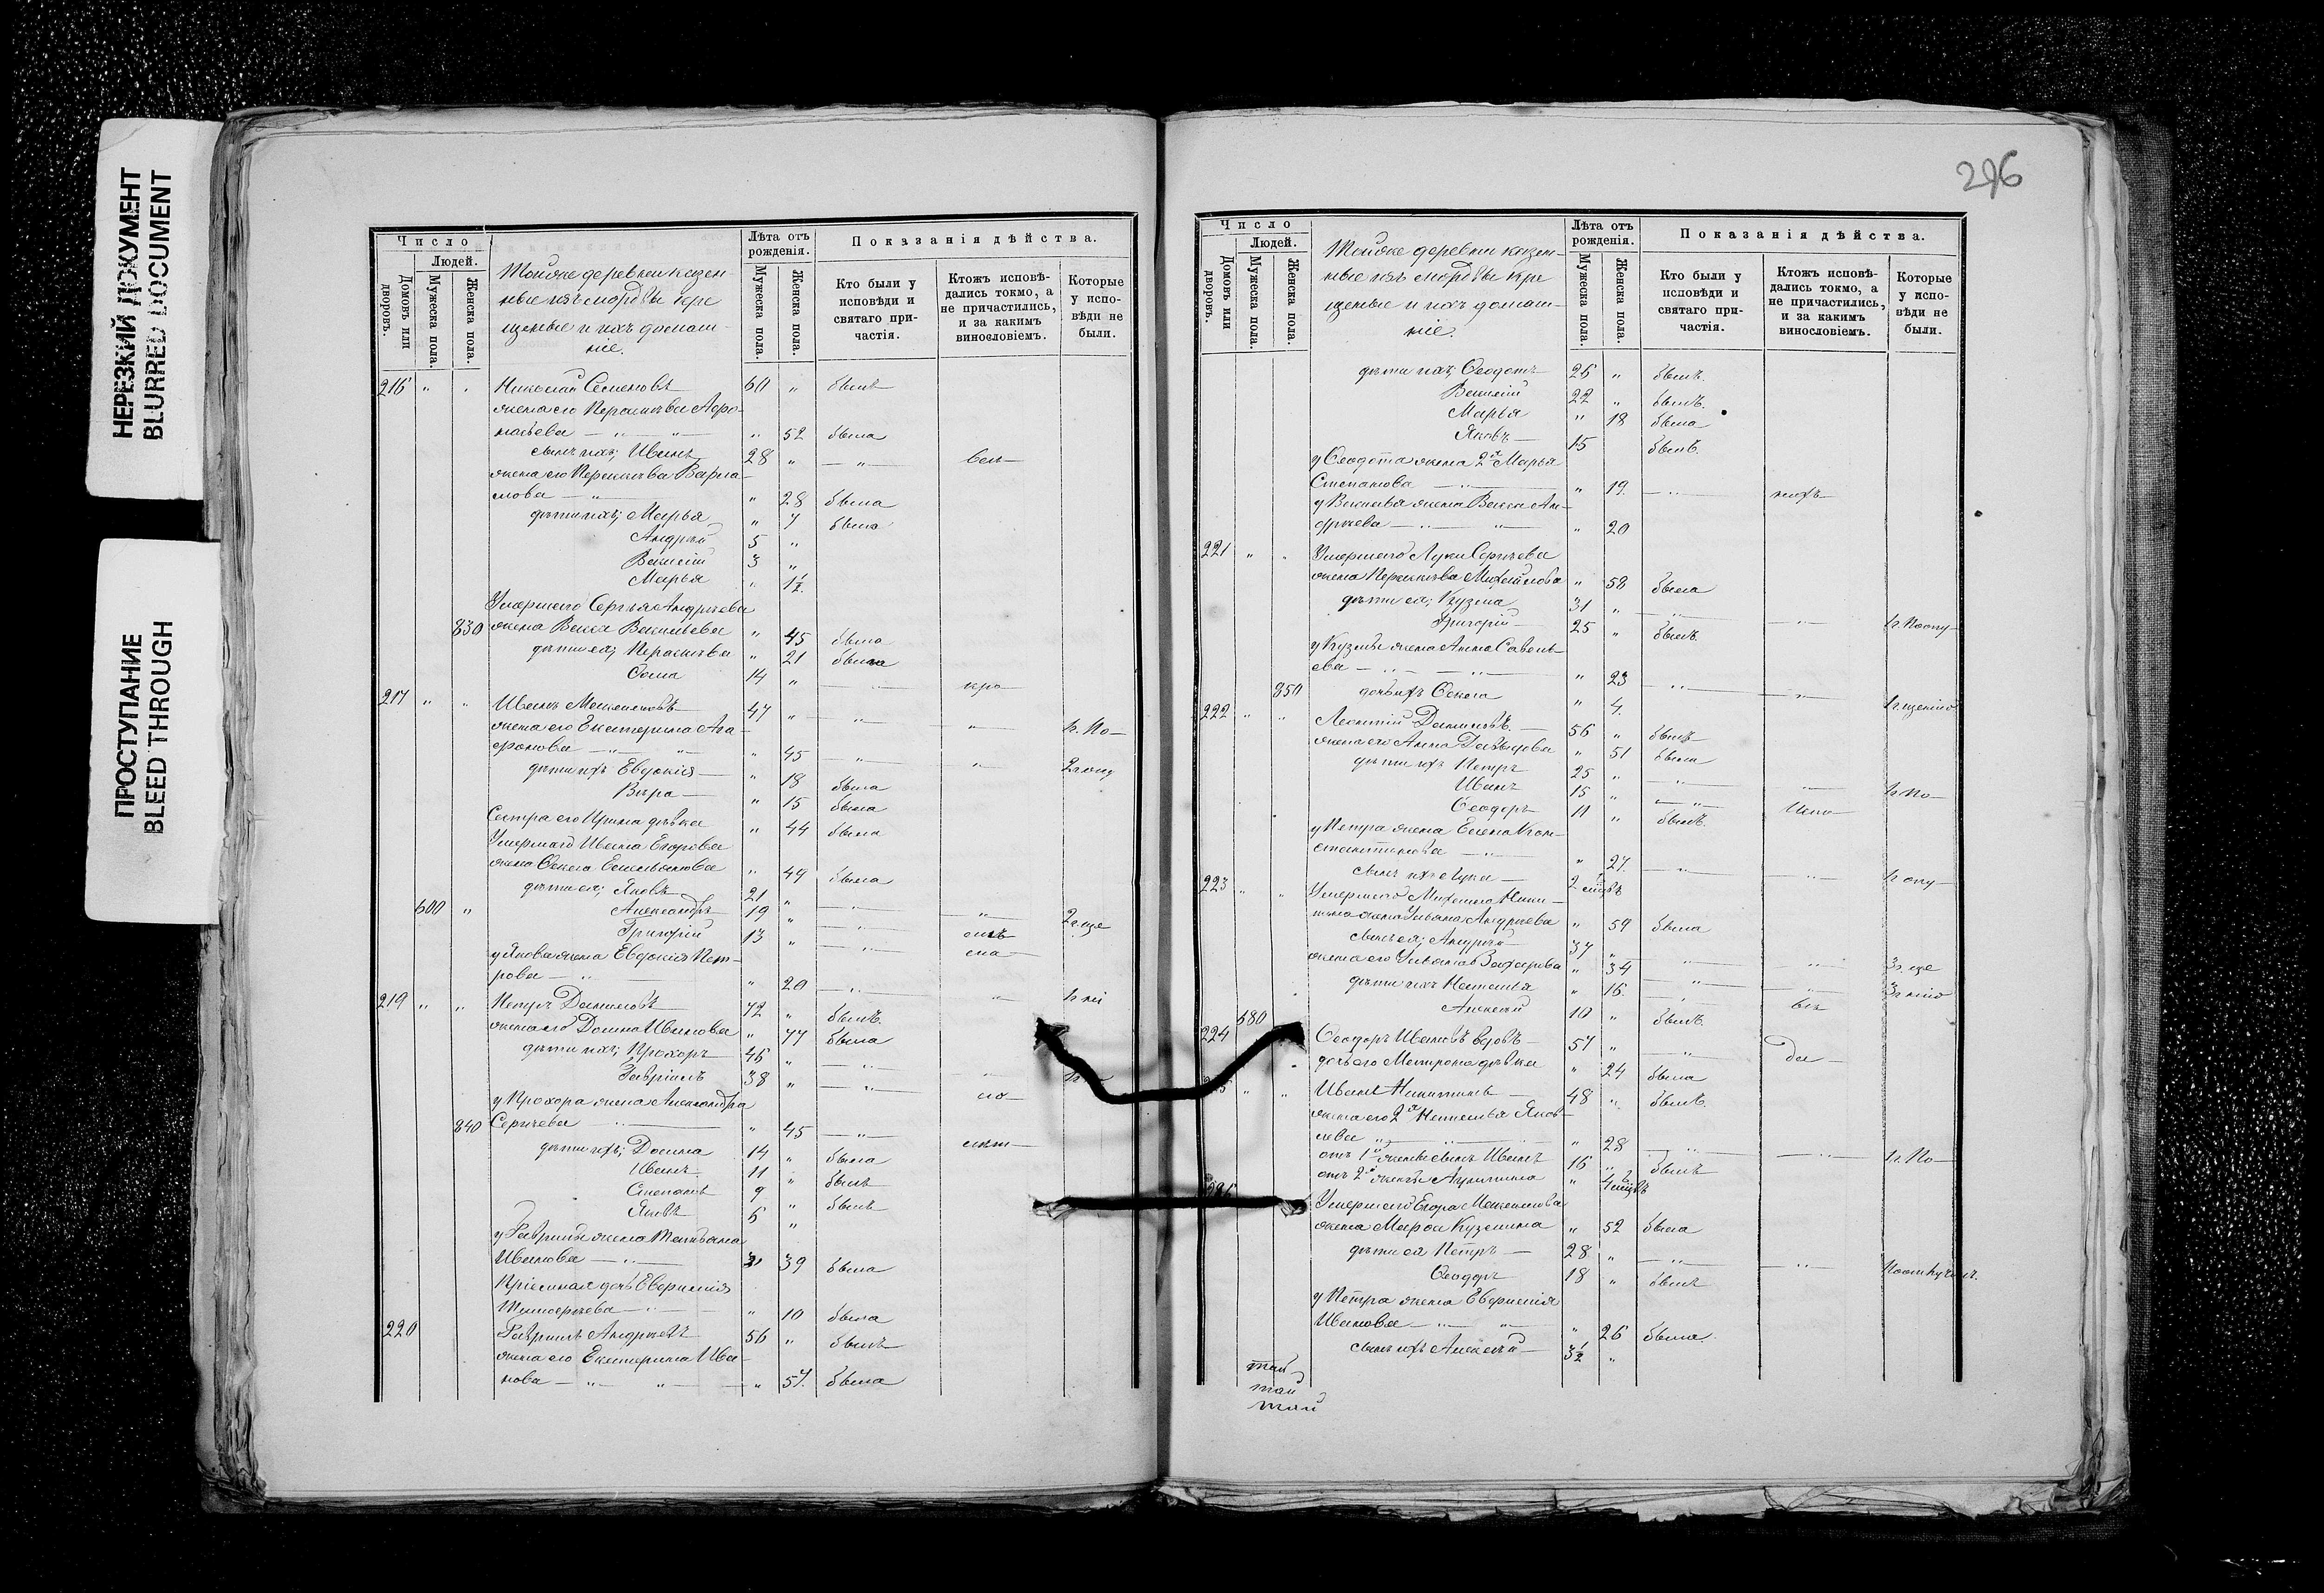 НЕРЕЗКИЙ ДОКУМЕНТ
BLURRED DOCUMENT
ПРОСТУПАНИЕ
BLEED THROUGH
Число
Людей.
Домовъ или дворовъ.
Мужеска пола.
Женска пола.
Тойже деревни казен-
ные изъ мордвы кре
щеные и ихъ домаш-
ніе.
Лѣта отъ рожденія.
Мужеска пола.
Женска пола.
Показанія дѣйства.
Кто были у исповѣди и святаго при-частія.
Ктожъ исповѣ-дались токмо, а не причастились, и за какимъ винословіемъ.
Которые у испо-вѣди не были.
216 " " Николай Семеновъ 60 " былъ
жена его Парасковья
" " " 52 была
сынъ ихъ; Иванъ 28 " "
жена его Парасковья Варла-
мова " " 28 была
дѣти ихъ; Марья " 7 была
Андрей 5 "
Василій 3 "
Марья " 1½
Умершаго Сергѣя Андреева
830 жена Васса Васильева " 45 была
дѣти ея; Парасковья " 21 была
14 " "
217 " " Иванъ 47 " " "
жена его Екатерина Ага-
фонова " " " 45 " "
дѣти ихъ Евдокія " 18 была
Вѣра " 15 была
Сестра его Ирина дѣвка " 44 была
Умершаго Ивана Егорова
жена Фекла Емельянова " 49 была
дѣти ея; Яковъ 21 " " "
600 " Александръ 19 " "
Григорій 13 " "
у Якова жена Евдокія Пет-
рова " " 20 " "
219 " " Петръ Даниловъ 72 " былъ
жена его Домна Иванова " 77 была
дѣти ихъ; Прохоръ 46 " " "
Гавріилъ 38 " "
у Прохора жена Александра
840 Сергѣева " " 45 "
дѣти ихъ; Домна 14 " была
Иванъ 11 " былъ
Степанъ 9 " былъ
Яковъ 6 "
у Гаврилы жена Татьяна
Иванова " 39 была
Пріемная дочь Евфимія
Тимофеева " " 10 была
220 Гаврилъ Андреевъ 56 " былъ
жена его Екатерина Ива-
нова " " " 57. была
296
Число
Людей.
Домовъ или дворовъ.
Мужеска пола.
Женска пола.
Тойже деревни казен-
ные изъ мордвы кре
щеные и ихъ домаш-
ніе.
Лѣта отъ рожденія.
Мужеска пола.
Женска пола.
Показанія дѣйства.
Кто были у исповѣди и святаго при-частія.
Ктожъ исповѣ-дались токмо, а не причастились, и за какимъ винословіемъ.
Которые у испо-вѣди не были.
дѣти ихъ; Ѳеодотъ 26 " былъ.
Василій 22 " былъ.
Марья " 18 была
Яковъ 15 былъ.
у Ѳеодота жена 2я Марья
Степанова " " 19. "
у Василья жена Васса Ан-
дреева " " " 20
221 " " Умершаго Луки Сергѣева
жена Парасковья Михайлова " 58 была
дѣти ея; Кузма 31 " " "
Григорій 25 " былъ.
у Кузмы жена Анна Савель-
ева " " " 23 " "
850 дочь ихъ Фекла " 4.
222 " " Леонтій Даниловъ 56 " былъ
жена его Анна Давыдова " 51 была
дѣти ихъ Петръ 25 " " "
Иванъ 15 " "
Ѳеодоръ 11 " былъ.
у Петра жена Елена Кон-
стантинова " " 27. " "
сынъ ихъ Лука 2
223 " " Умершаго Михаила Ники-
тина жена Ульяна Андреева " 59 была
сынъ ея; Андрей 37 " " "
жена его Ульяна Захарова " 34 " "
дѣти ихъ Наталья " 16. "
680 Алексей 10 " былъ.
224 Ѳеодоръ Ивановъ вдовъ 57 " "
дочь его Матрона дѣвка " 24 была
" " Иванъ Никитинъ 48 " былъ.
жена его 2я Наталья Яков-
лева " " " 28 " " "
отъ 1й жены сынъ Иванъ 16 " былъ
отъ 2й жены Акулина " 4
Умершаго Егора
жена Марфа Кузмина " 52 была
дѣти ея Петръ 28 " " "
Ѳеодоръ 18 " былъ
у Петра жена Евфимія
Иванова " " " 26 была.
сынъ ихъ Алексей 3½ "